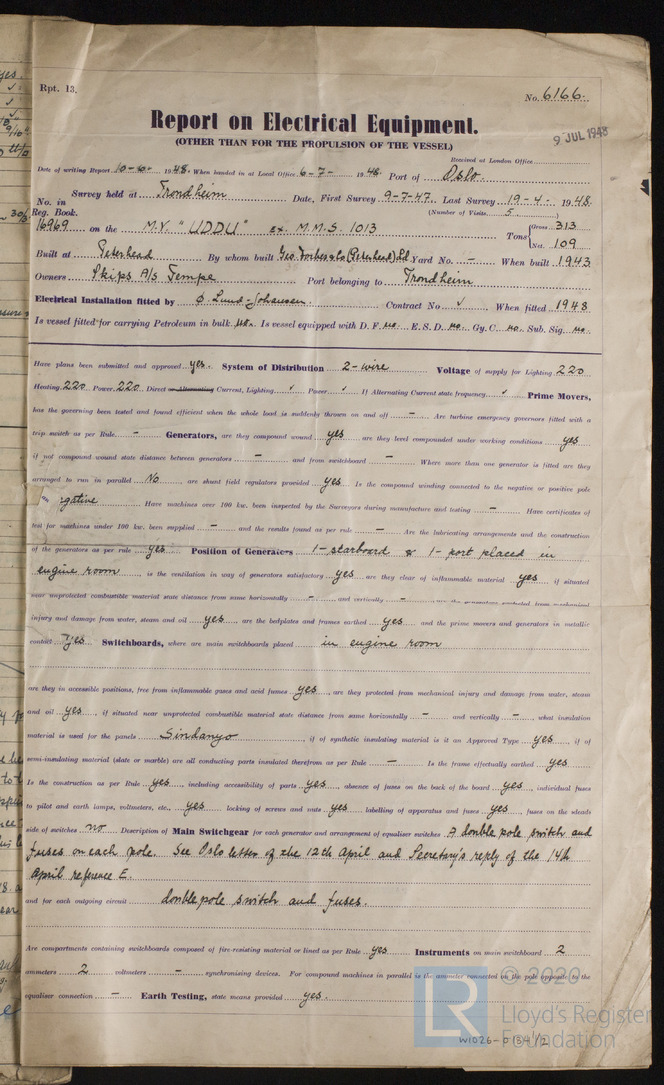 Rpt. 13.
No. 6166.
Report on Electrical Equipment.
(OTHER THAN FOR THE PROPULSION OF THE VESSEL)
9 JUL 1948
Received at London Office
Date of writing Report 10-6- 1948. When handed in at Local Office 6-7- 1948 Port of Oslo.
No. in Survey held at Trondheim Date, First Survey 9-7-47. Last Survey 19-4- 1948.
Reg. Book. (Number of Visits 5 )
16969 on the M.V. "UDDU" ex. M.M.S. 1013 Tons {Gross 313 Net 109
Built at Peterhead By whom built Geo. Forbes & Co (Peterhead) Ld Yard No. - When built 1943
Owners Skips A/s Tempe Port belonging to Trondheim
Electrical Installation fitted by Ø. Lund-Johansen. Contract No ✓ When fitted 1948
Is vessel fitted for carrying Petroleum in bulk no. Is vessel equipped with D.F. no. E.S.D. no. Gy.C. no. Sub. Sig. no.
Have plans been submitted and approved yes. System of Distribution 2-wire Voltage of supply for Lighting 220
Heating 220 Power 220 Direct or Alternating Current, Lighting ✓ Power ✓ If Alternating Current state frequency ✓ Prime Movers,
has the governing been tested and found efficient when the whole load is suddenly thrown on and off - Are turbine emergency governors fitted with a
trip switch as per Rule - Generators, are they compound wound yes are they level compounded under working conditions yes
if not compound wound state distance between generators - and from switchboard - Where more than one generator is fitted are they
arranged to run in parallel No are shunt field regulators provided yes Is the compound winding connected to the negative or positive pole
gative Have machines over 100 kw. been inspected by the Surveyors during manufacture and testing - Have certificates of
test for machines under 100 kw. been supplied - and the results found as per rule - Are the lubricating arrangements and the construction
of the generators as per rule yes Position of Generators 1-starboard & 1-port placed in
engine room is the ventilation in way of generators satisfactory yes are they clear of inflammable material yes if situated
near unprotected combustible material state distance from same horizontally - and vertically - are the generators protected from mechanical
injury and damage from water, steam and oil yes are the bedplates and frames earthed yes and the prime movers and generators in metallic
contact Yes Switchboards, where are main switchboards placed in engine room
are they in accessible positions, free from inflammable gases and acid fumes yes, are they protected from mechanical injury and damage from water, steam
and oil yes, if situated near unprotected combustible material state distance from same horizontally - and vertically -, what insulation
material is used for the panels Sindanyo, if of synthetic insulating material is it an Approved Type yes, if of
semi-insulating material (slate or marble) are all conducting parts insulated therefrom as per Rule - Is the frame effectually earthed yes
Is the construction as per Rule yes, including accessibility of parts yes, absence of fuses on the back of the board yes, individual fuses
to pilot and earth lamps, voltmeters, etc., yes locking of screws and nuts yes labelling of apparatus and fuses yes, fuses on the "dead"
side of switches no Description of Main Switchgear for each generator and arrangement of equaliser switches A double pole switch and
fuses on each pole. See Oslo letter of the 12th April and Secretary's reply of the 14th
April reference E.
and for each outgoing circuit double pole switch and fuses.
Are compartments containing switchboards composed of fire-resisting material or lined as per Rule yes Instruments on main switchboard 2
ammeters 2 voltmeters - synchronising devices. For compound machines in parallel is the ammeter connected on the pole opposite to the
equaliser connection - Earth Testing, state means provided yes.
© 2020
LR
Lloyd's Register
Foundation
W1026-0134 1/2